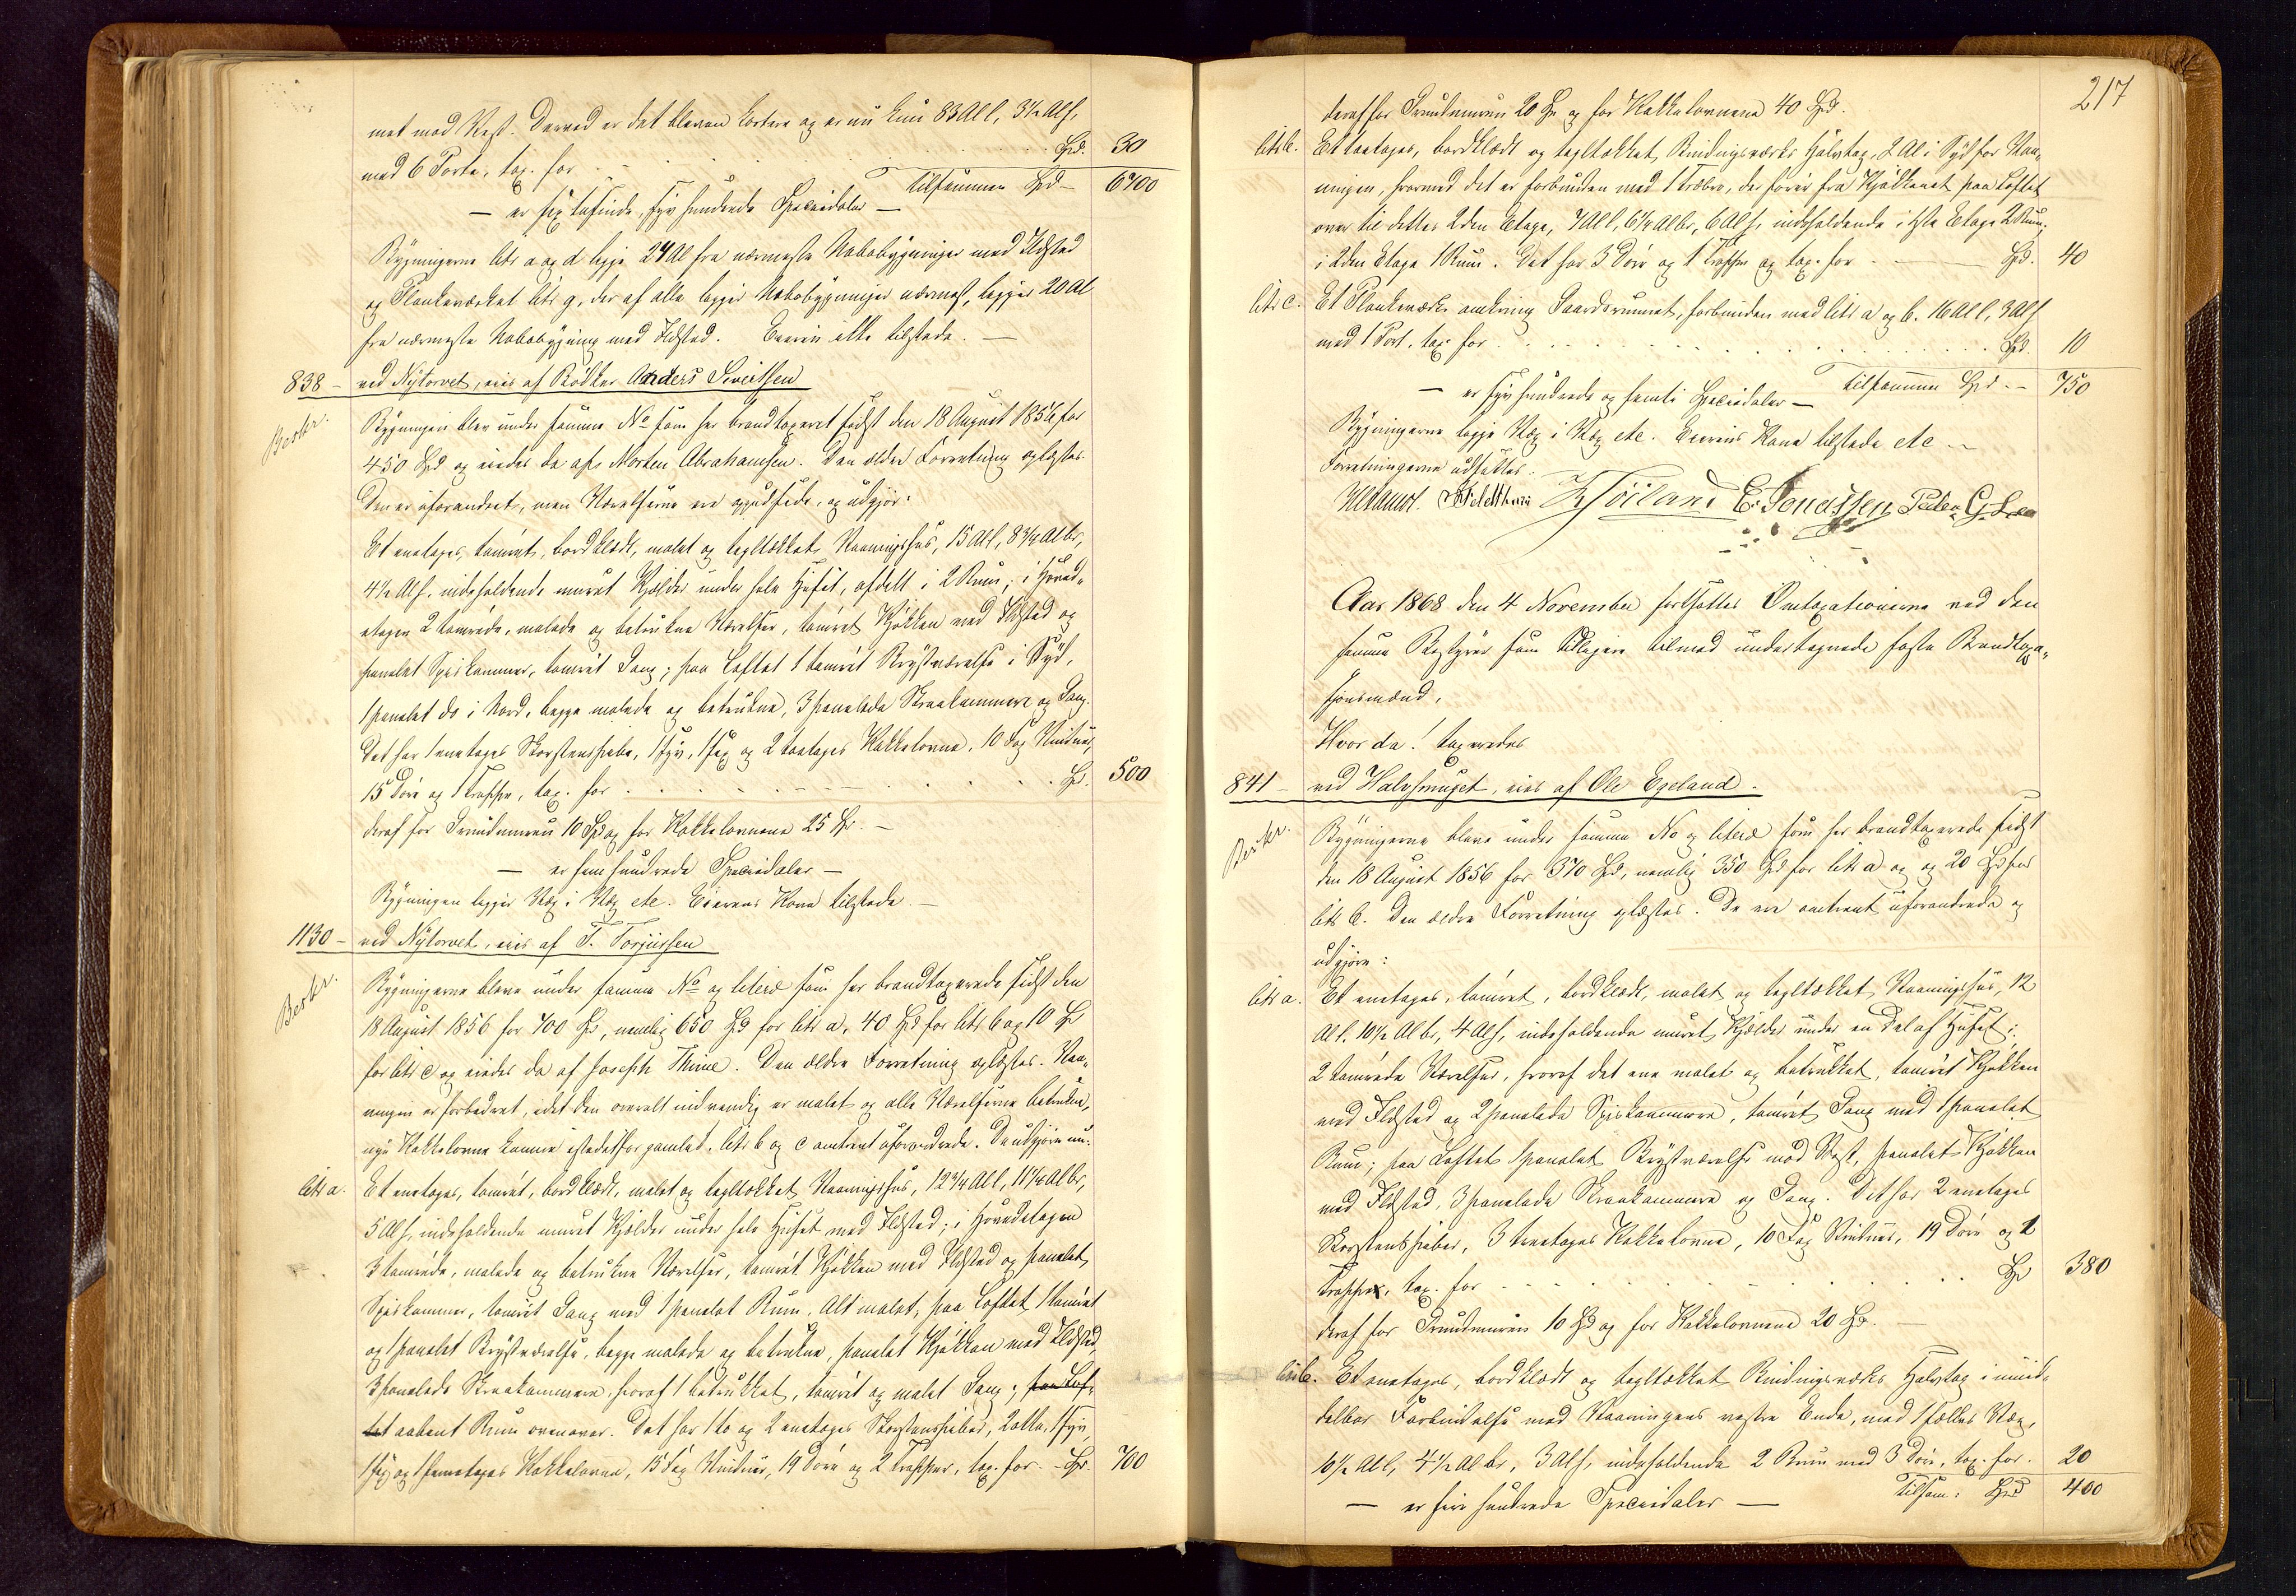 met mod Vest. Derved er det bleven kortere og er nu kun 83 Al l, 3½ Al h,
med 6 Porte, tax. for Spd. 30
Tilsammen Spd - 6700
- er sex tusinde, syv hundrede Speciedaler -
Bygningerne litr a og d ligge 24 Al fra nærmeste Nabobygninger med Ildsted
og Plankeværket litr g, der af alle ligger Nabobygninger nærmest, ligger 20 Al
fra nærmeste Nabobygning med Ildsted. Eieren ikke tilstede. -
838 - ved Nytorvet, eies af Bødker Anders Sivertsen
Beskr.
Bygningen blev under samme No som her brandtaxeret sidst den 18 August 1856 for
450 Spd og eiedes da af Morten Abrahamsen. Den ældre Forretning oplæstes.
Den er uforandret, men Værelserne ere oppudsede, og udgjør:
Et eenetages, tømret, bordklædt, malet og tegltækket Vaaningshus, 15 Al l, 8¾ Al br,
4½ Al h, indeholdende muret Kjælder under hele Huset, afdelt i 2 Rum; i Hoved-
etagen 2 tømrede, malede og betrukne Værelser, tømret Kjøkken med Ildsted og
panelet Spiskammer, tømret Gang; paa Loftet 1 tømret Kvistværelse i Syd,
1 panelet do i Nord, begge malede og betrukne, 3 panelede Skraakammere og Gang.
Det har 1 eenetages Skorstenspibe, 1 syv, 1 sex og 2 toetages Kakkelovne, 10 Fag Vinduer,
15 Døre og 1 Trappe, tax. for Spd. 500
deraf for Grundmuren 10 Spd og for Kakkelovnene 25 Spd. -
- er fem hundrede Speciedaler -
Bygningen ligger Væg i Væg etc. Eierens Kone tilstede. -
1130 - ved Nytorvet, eies af T. Torjussen
Beskr.
Bygningerne bleve under samme No og literæ som her brandtaxerede sidst den
18 August 1856 for 700 Spd, nemlig 650 Spd for litr a, 40 Spd for litr b og 10 Spd
for litr c og eiedes da af Joseph Thime. Den ældre Forretning oplæstes. Vaa-
ningen er forbedret, idet den overalt indvendig er malet og alle Værelserne betrukne,
nye Kakkelovne komne istedetfor gamle, litr b og c omtrent uforandrede. De udgjøre nu:
litr a. Et eenetages, tømret, bordklædt, malet og tegltækket Vaaningshus, 12¾ Al l, 11¼ Al br,
5 Al h, indeholdende muret Kjælder under hele Huset med Ildsted; i Hovedetagen
3 tømrede, malede og betrukne Værelser, tømret Kjøkken med Ildsted og panelet
Spiskammer, tømret Gang med 1 panelet Rum. Alt malet; paa Loftet 1 tømret
og 1 panelet Kvistværelse, begge malede og betrukne, panelet Kjøkken med Ildsted,
3 panelede Skraakammere, hvoraf 1 betrukket, tømret og malet Gang; paa Lof-
tet aabent Rum ovenover. Det har 1 to og 2 eenetages Skorstenspiber, 2 otte, 1 syv,
1 sex og 1 femetages Kakkelovne, 15 Fag Vinduer, 19 Døre og 2 Trapper, tax. for - Spd. 700
217
deraf for Grundmuren 20 Spd og for Kakkelovnene 40 Spd.
litr b. Et toetages, bordklædt og tegltækket Bindingsværks Halvtag, 2 Al i Syd for Vaa-
ningen, hvormed det er forbunden med 1 Træbro, der fører fra Kjøkkenet paa Loftet
over til dettes 2den Etage, 7 Al l, 6¼ Al br, 6 Al h, indeholdende i 1ste Etage 2 Rum,
i 2den Etage 1 Rum. Det har 3 Døre og 1 Trappe og tax. for Spd. 40
litr c. Et Plankeværk omkring Gaardsrummet, forbunden med litr a og b. 16 Al l, 3 Al h
med 1 Port, tax. for Spd. 10
Tilsammen Spd. - 750
- er syv hundrede og femti Speciedaler -
Bygningerne ligge Væg i Væg etc. Eierens Kone tilstede etc -
Forretningerne udsattes.
E. Jonassen Peder G. Lea
Aar 1868 den 4 November fortsattes Omtaxationerne ved den
samme Bestyrer som tidligere tilmed undertegnede faste Brandtaxa-
tionsmænd,
Hvor da! taxeredes
841 - ved Halvsmuget, eies af Ole Egeland.
Beskr.
Bygningerne bleve under samme No og literæ som her brandtaxerede sidst
den 18 August 1856 for 370 Spd, nemlig 350 Spd for litr a og og 20 Spd for
litr b. Den ældre Forretning oplæstes. De ere omtrent uforandrede og
udgjøre:
litr a. Et eenetages, tømret, bordklædt, malet og tegltækket Vaaningshus, 12
Al l. 10½ Al br, 4 Al h, indeholdende muret Kjælder under en Del af Huset;
2 tømrede Værelser, hvoraf det ene malet og betrukket, tømret Kjøkken
med Ildsted og 2 panelede Spiskammere, tømret Gang med 1 panelet
Rum; paa Loftet 1 panelet Kvistværelse mod Vest, panelet Kjøkken
med Ildsted, 3 panelede Skraakammere og Gang. Det har 2 eenetages
Skorstenspiber, 3 treetages Kakkelovne, 10 Fag Vinduer, 19 Døre og 1
Trappe, tax. for Spd 380
deraf for Grundmuren 10 Spd og for Kakkelovnene 20 Spd.
litr b. Et eenetages, bordklædt og tegltækket Bindingsværks Halvtag i umid-
delbar Forbindelse med Vaaningens vestre Ende, med 1 fælles Væg,
10½ Al l, 4½ Al br, 3 Al h, indeholdende 2 Rum med 3 Døre, tax. for. 20
Tilsam: Spd 400
- er fire hundrede Speciedaler -